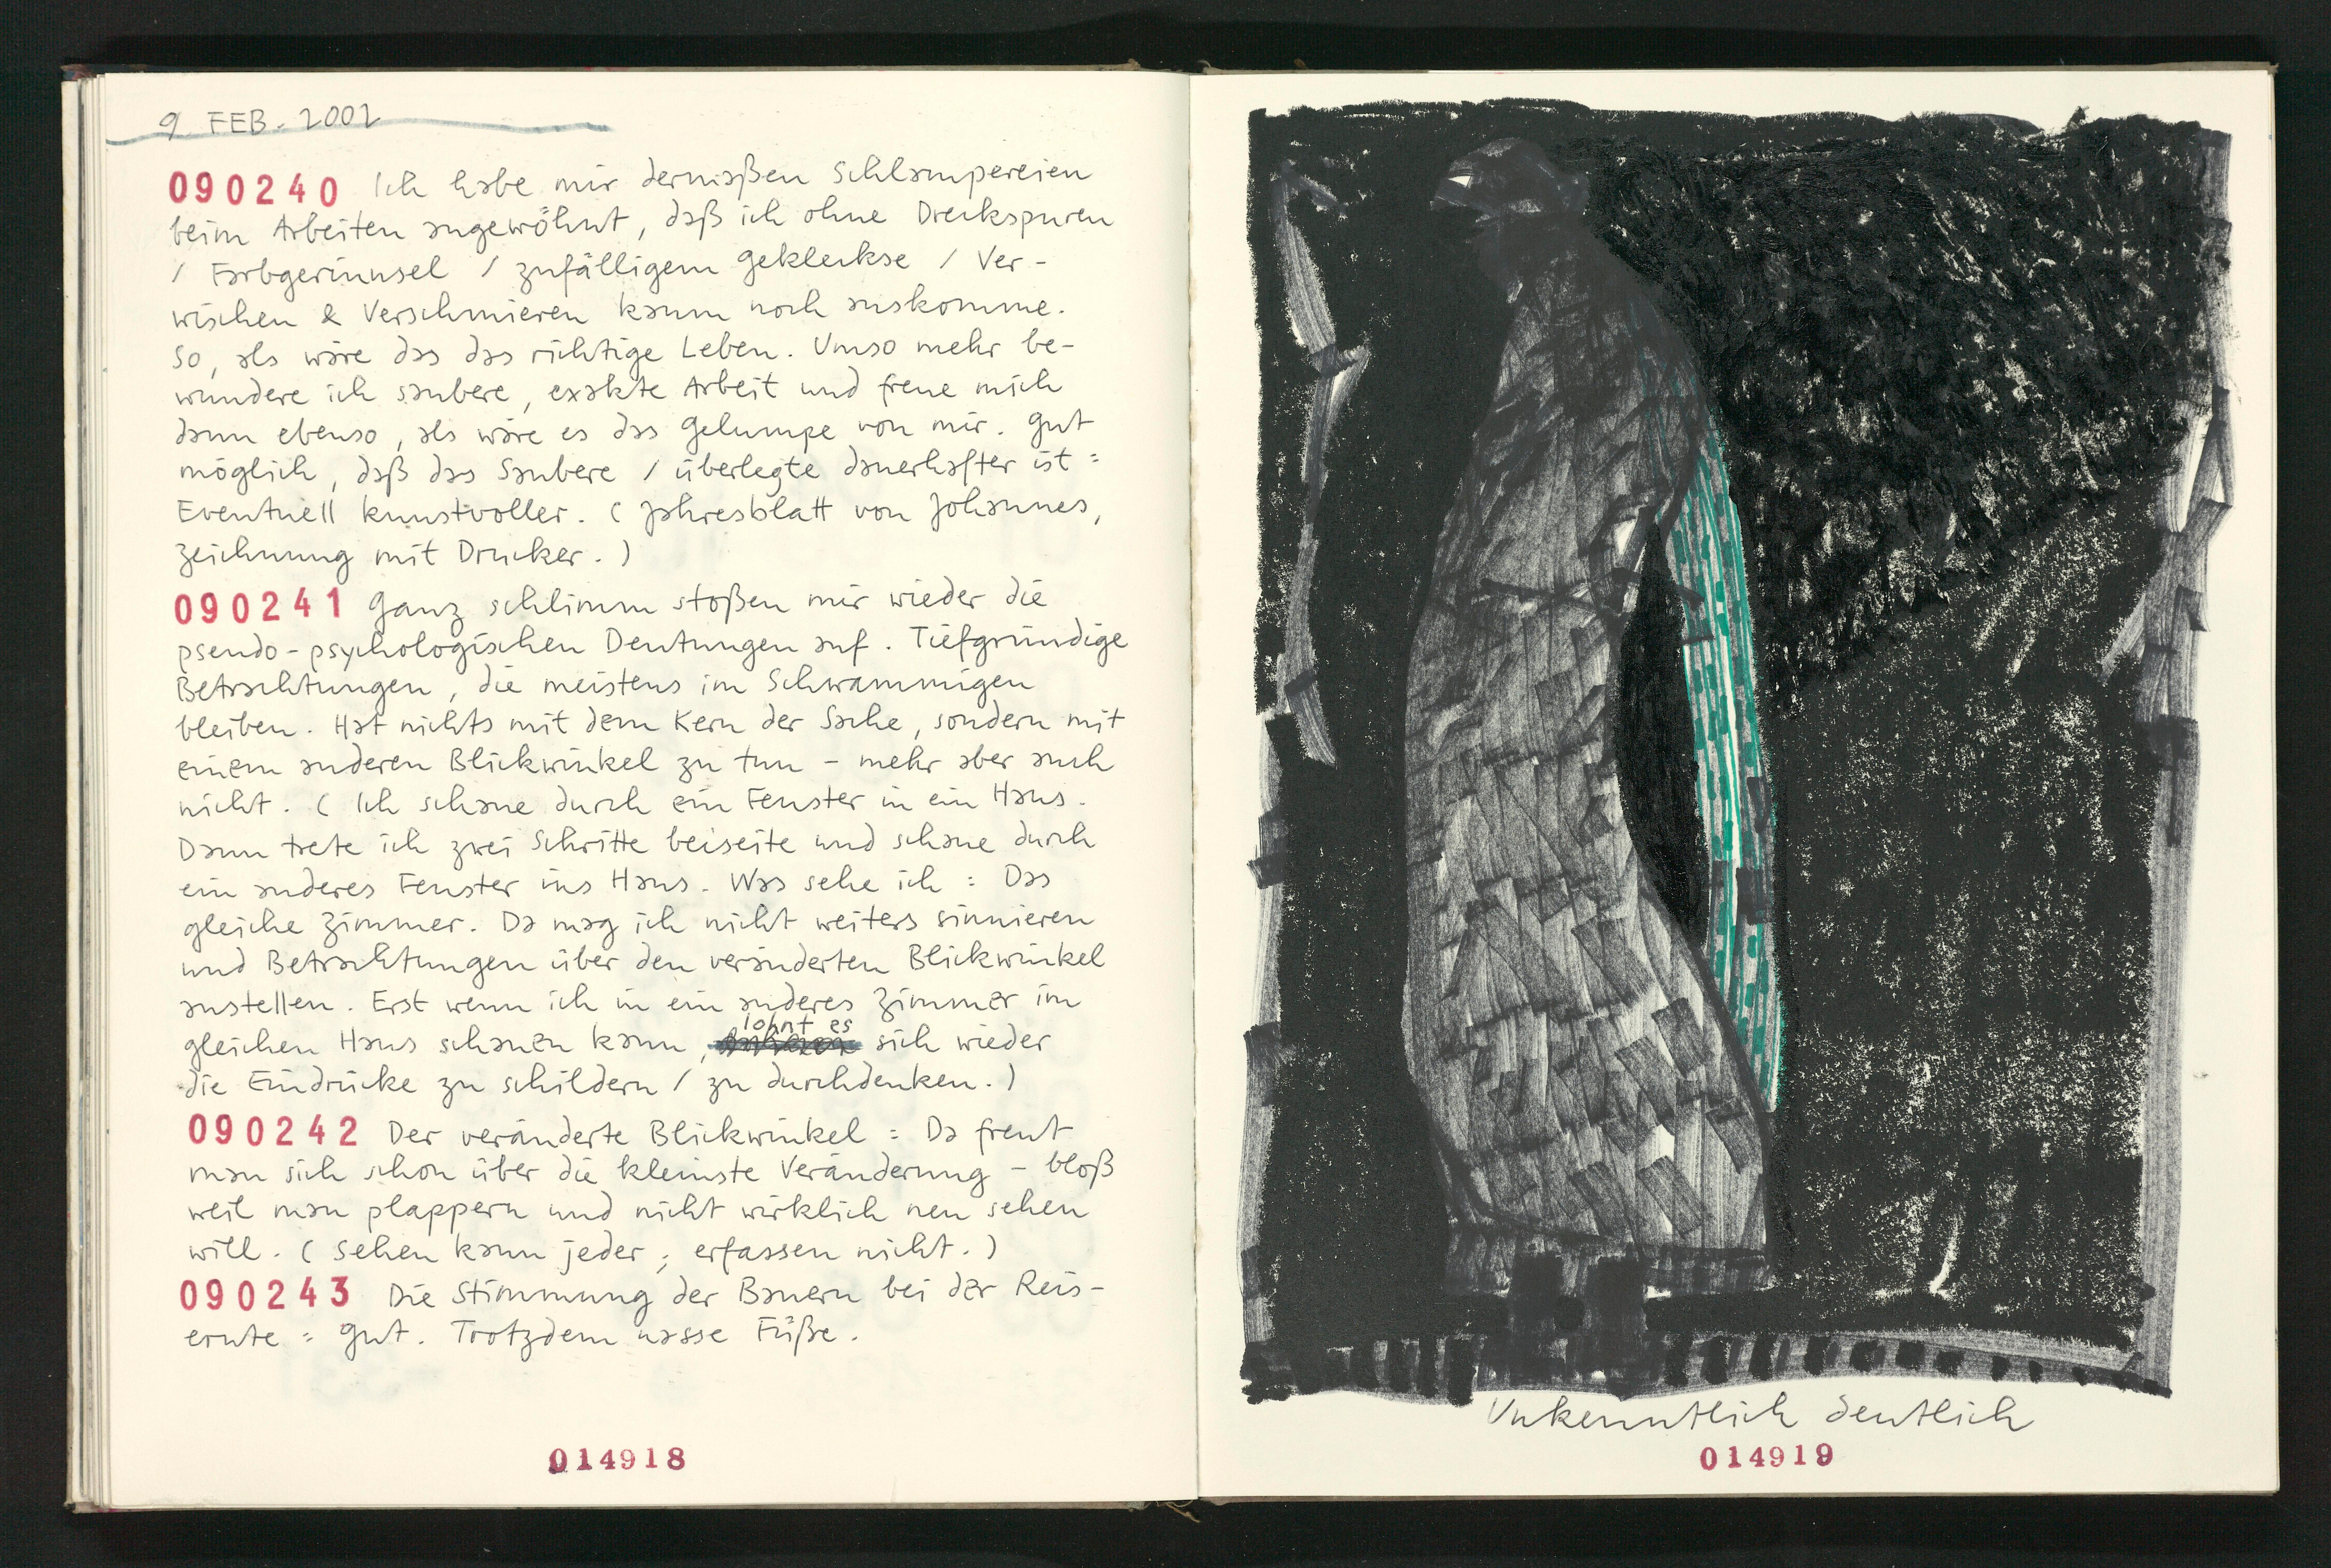 9. FEB. 2002
090240 Ich habe mir dermaßen Schlampereien
beim Arbeiten angewöhnt, daß ich ohne Dreckspuren
/ Farbgerinnsel / zufälligem Gekleckse / Ver-
wischen & Verschmieren kaum noch auskomme.
So, als wäre das das richtige Leben. Umso mehr be-
wundere ich saubere, exakte Arbeit und freue mich
dann ebenso, als wäre es das Gelumpe von mir. Gut
möglich, daß das Saubere / überlegte dauerhafter ist =
Eventuell kunstvoller. (Jahresblatt von Johannes,
Zeichnung mit Drucker.)
090241 Ganz schlimm stoßen mir wieder die
pseudo-psychologischen Deutungen auf. Tiefgründige
Betrachtungen, die meistens im Schwammigen
bleiben. Hat nichts mit dem Kern der Sache, sondern mit
einem anderen Blickwinkel zu tun – mehr aber auch
nicht. (Ich schaue durch ein Fenster in ein Haus.
Dann trete ich zwei Schritte beiseite und schaue durch
ein anderes Fenster ins Haus. Was sehe ich = Das
gleiche Zimmer. Da mag ich nicht weiters sinnieren
und Betrachtungen über den veränderten Blickwinkel
anstellen. Erst wenn ich in ein anderes Zimmer im
gleichen Haus schauen kann, lohnt es sich wieder
die Eindrücke zu schildern / zu durchdenken.)
090242 Der veränderte Blickwinkel = Da freut
man sich schon über die kleinste Veränderung – bloß
weil man plappern und nicht wirklich neu sehen
will. (Sehen kann jeder; erfassen nicht.)
090243 Die Stimmung der Bauern bei der Reis-
ernte = gut. Trotzdem nasse Füße.
014918
Unkenntlich deutlich
014919